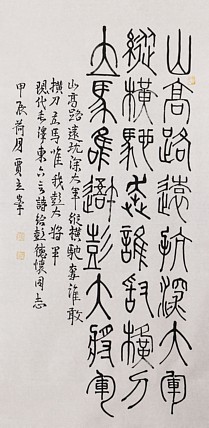 山高路遠坑深大軍
縱橫馳奔誰敢橫刀
立馬惟我彭大將軍
山高路遠坑深大軍縱橫馳奔誰敢
橫刀立馬惟我彭大將軍
現代毛澤東六言詩給彭德懷同志
甲辰荷月賈立峯